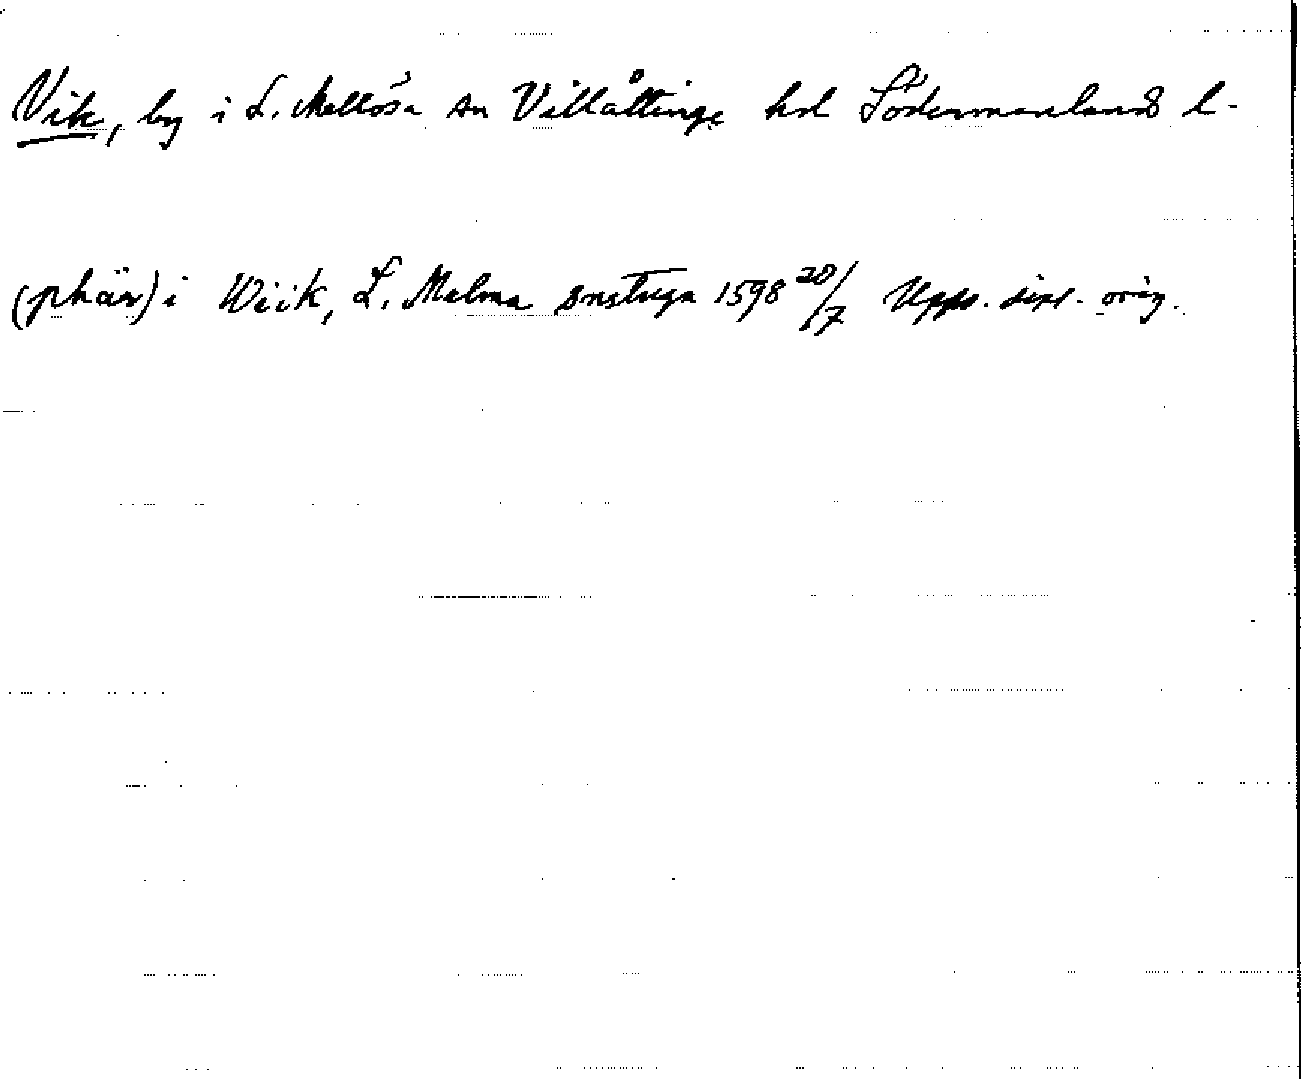 Vik, by i L. Mellösa sn Villåttinge hd Södermanland l.
(phär) i Wiik, L. Malma snstuga 1598 20/7 Upps. dipl. orig.